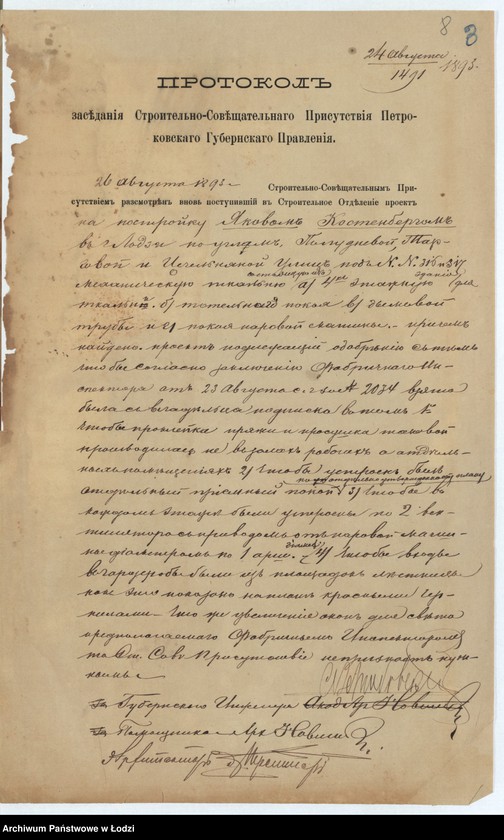 8 3
24 Августа
1491 1893.
ПРОТОКОЛЪ
засѣданія Строительно-Совѣщательнаго Присутствія Петро-
ковскаго Губернскаго Правленія.
26 Августа 1893 г. Строительно-Совѣщательнымъ При-
сутствіемъ разсмотрѣнъ вновь поступившій въ Строительное Отдѣленіе проектъ
на постройку Яковомъ Костенбергомъ
въ г. Лодзи по угламъ, Полудневой, Тар-
говой и Цегельняной Улицъ подъ N. N. и
механическую ткальню а) этажную зданія для
ткальни б) котельнаго покоя в) дымовой
трубы и г) покоя паровой машины. - причемъ
найдено: проектъ подлежащій одобренію съ тѣмъ
чтобы согласно заключенію Фабричнаго Ин-
спектора отъ 23 Августа с. г. за № 2034 взята
была съ владѣльца подписка въ томъ 1)
чтобы проклейка пряжи и просушка таковой
производилась не въ залахъ работъ а отдѣль-
ныхъ помѣщеніяхъ 2) чтобы устроенъ былъ
отдѣльный пріемный покой 3) чтобы въ
каждомъ этажѣ были устроены по 2 вен-
тилятора съ приводомъ отъ паровой маши-
ны діаметромъ по 1 арш. 4) чтобы входы
въ гардеробы были изъ площадокъ лѣстницъ
какъ это показано на планѣ красными чер-
нилами. Что же увеличенія оконъ для свѣта
предполагаемаго Фабричнымъ Инспекторомъ
то Стр. Сов. Присутствіе не признаетъ нуж-
нымъ
Губернскаго Инженера
Помощника Арх.
Архитекторъ
Archiwum Państwowe w Łodzi